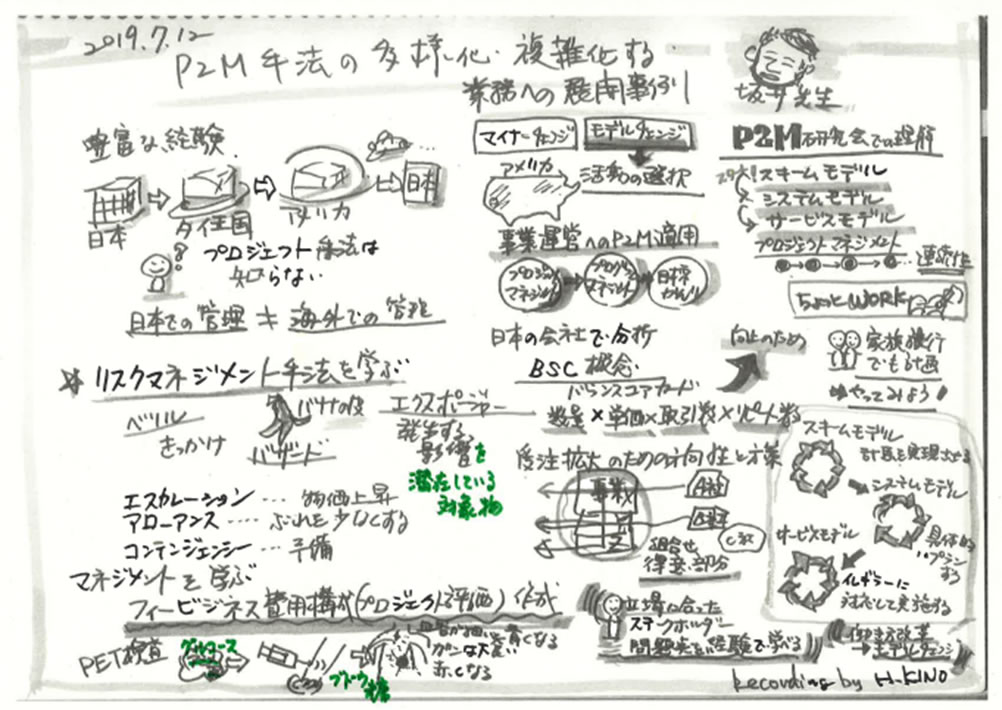 2019.7.12
P2M手法の多様化・複雑化する
業務への展開事例
坂井先生
豊富な経験
日本
タイ王国
アメリカ
日本
プロジェクト手法は
知らない
日本での管理 ≠ 海外での管理
リスクマネジメント手法を学ぶ
ペリル
きっかけ
バナナの皮
ハザード
エクスポージャー
発生する
影響を
潜在している
対象物
エスカレーション … 物価上昇
アローアンス …… ぶれを少なくする
コンテンジェンシー … 予備
マネジメントを学ぶ
フィービジネス費用構成(プロジェクト評価)作成
PET検査
グルコース
ブドウ糖
赤くなる
マイナーチェンジ
モデルチェンジ
アメリカ
活動の選択
事業運営へのP2M適用
プロジェクトマネジメント
プログラムマネジメント
日本の会社で分析
BSC 概念
バランスコアカード
向上のため
数量×単価×取引数×リピート数
受注拡大のための方向性と方策
事業
A社
B社
C社
組合せ
得意な部分
立場に合った
ステークホルダー
問題点を経験で学べる
P2M研究会での理解
スキームモデル
システムモデル
サービスモデル
プロジェクトマネジメント
連続性
ちょっとWORK
家族旅行
でも計画
やってみよう!
スキームモデル
計画を実現させる
システムモデル
具体的
プラン
する
サービスモデル
対応して実施する
働き方改革
→モデルチェンジ
Recording by H.KINO